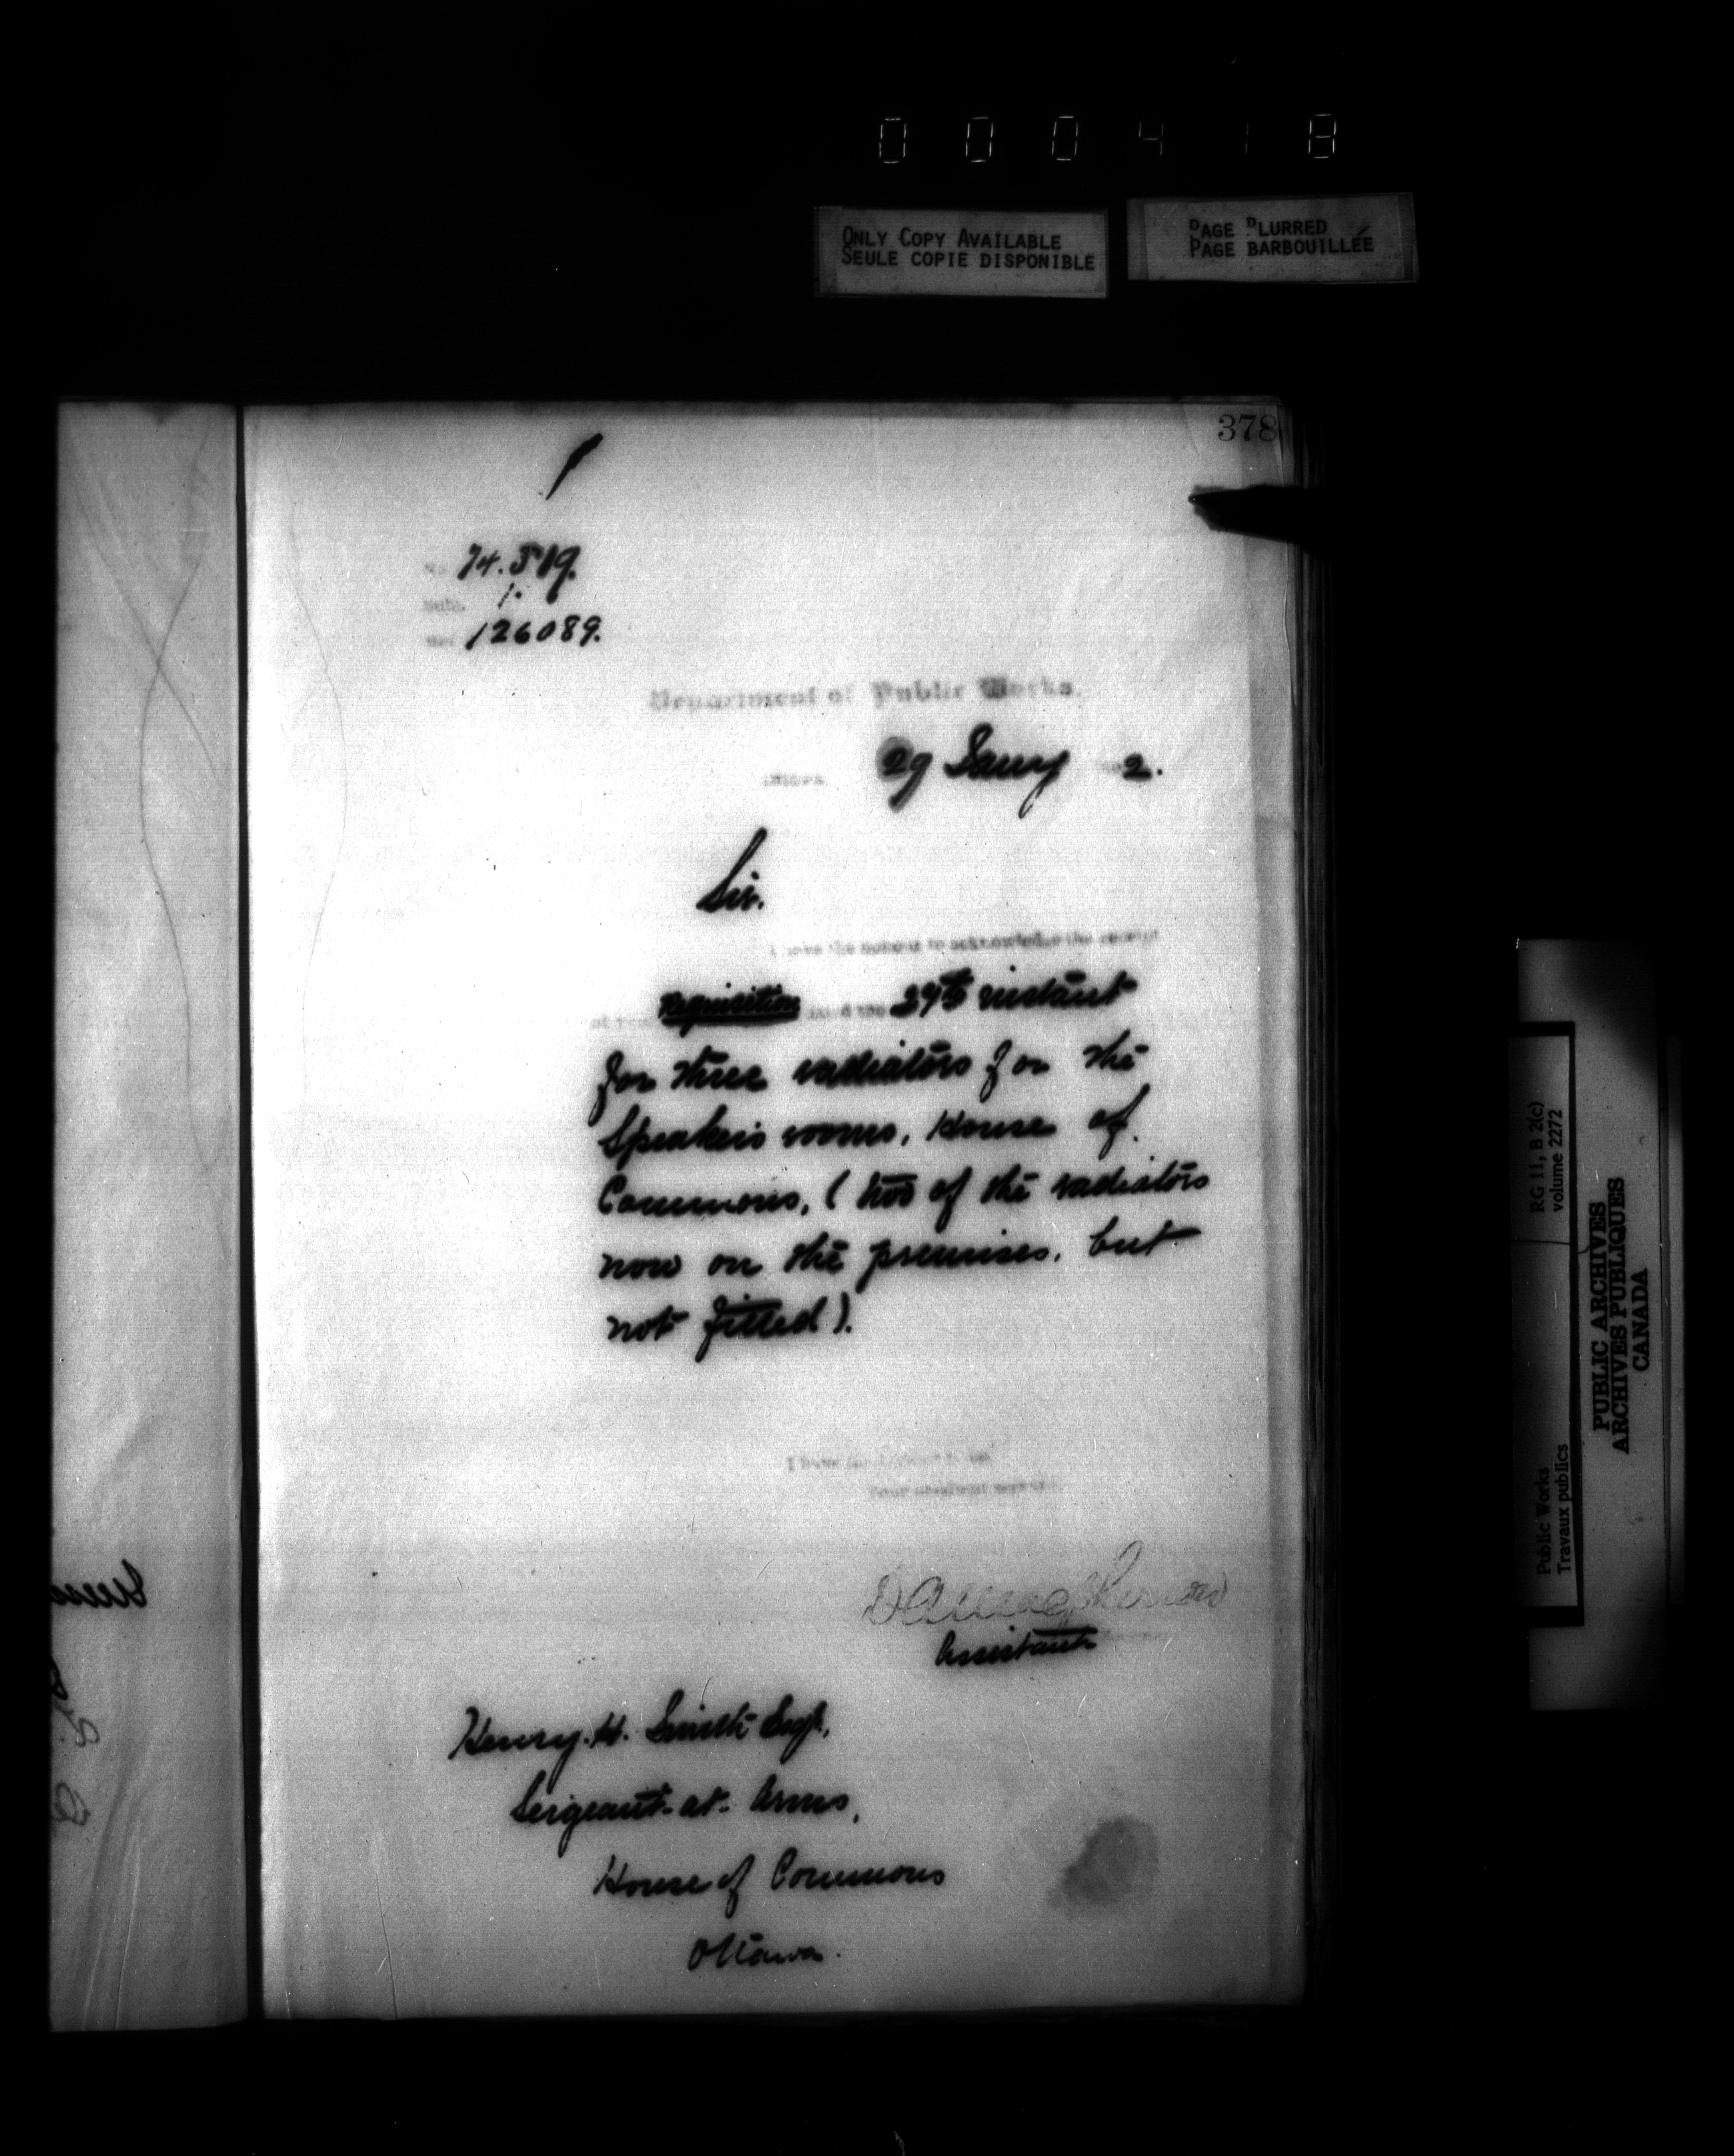 0 0 0 4 1 8
ONLY COPY AVAILABLE
SEULE COPIE DISPONIBLE
PAGE BLURRED
PAGE BARBOUILLÉE
378
74.519.
Subj. 1.
126089.
Department of Public Works.
Ottawa, 29 Jany 2.
Sir.
I have the honour to acknowledge the receipt
of your requisition dated the 29th instant
for three radiators for the
Speaker's rooms, House of
Commons, (two of the radiators
now on the premises, but
not fitted).
I have the honour to be
Your obedient servant
Assistant
Henry. H. Smith Esqr,
Sergeant-at-Arms,
House of Commons
Ottawa.
RG 11, B 2(c)
volume 2272
Public Works
Travaux publics
PUBLIC ARCHIVES
ARCHIVES PUBLIQUES
CANADA